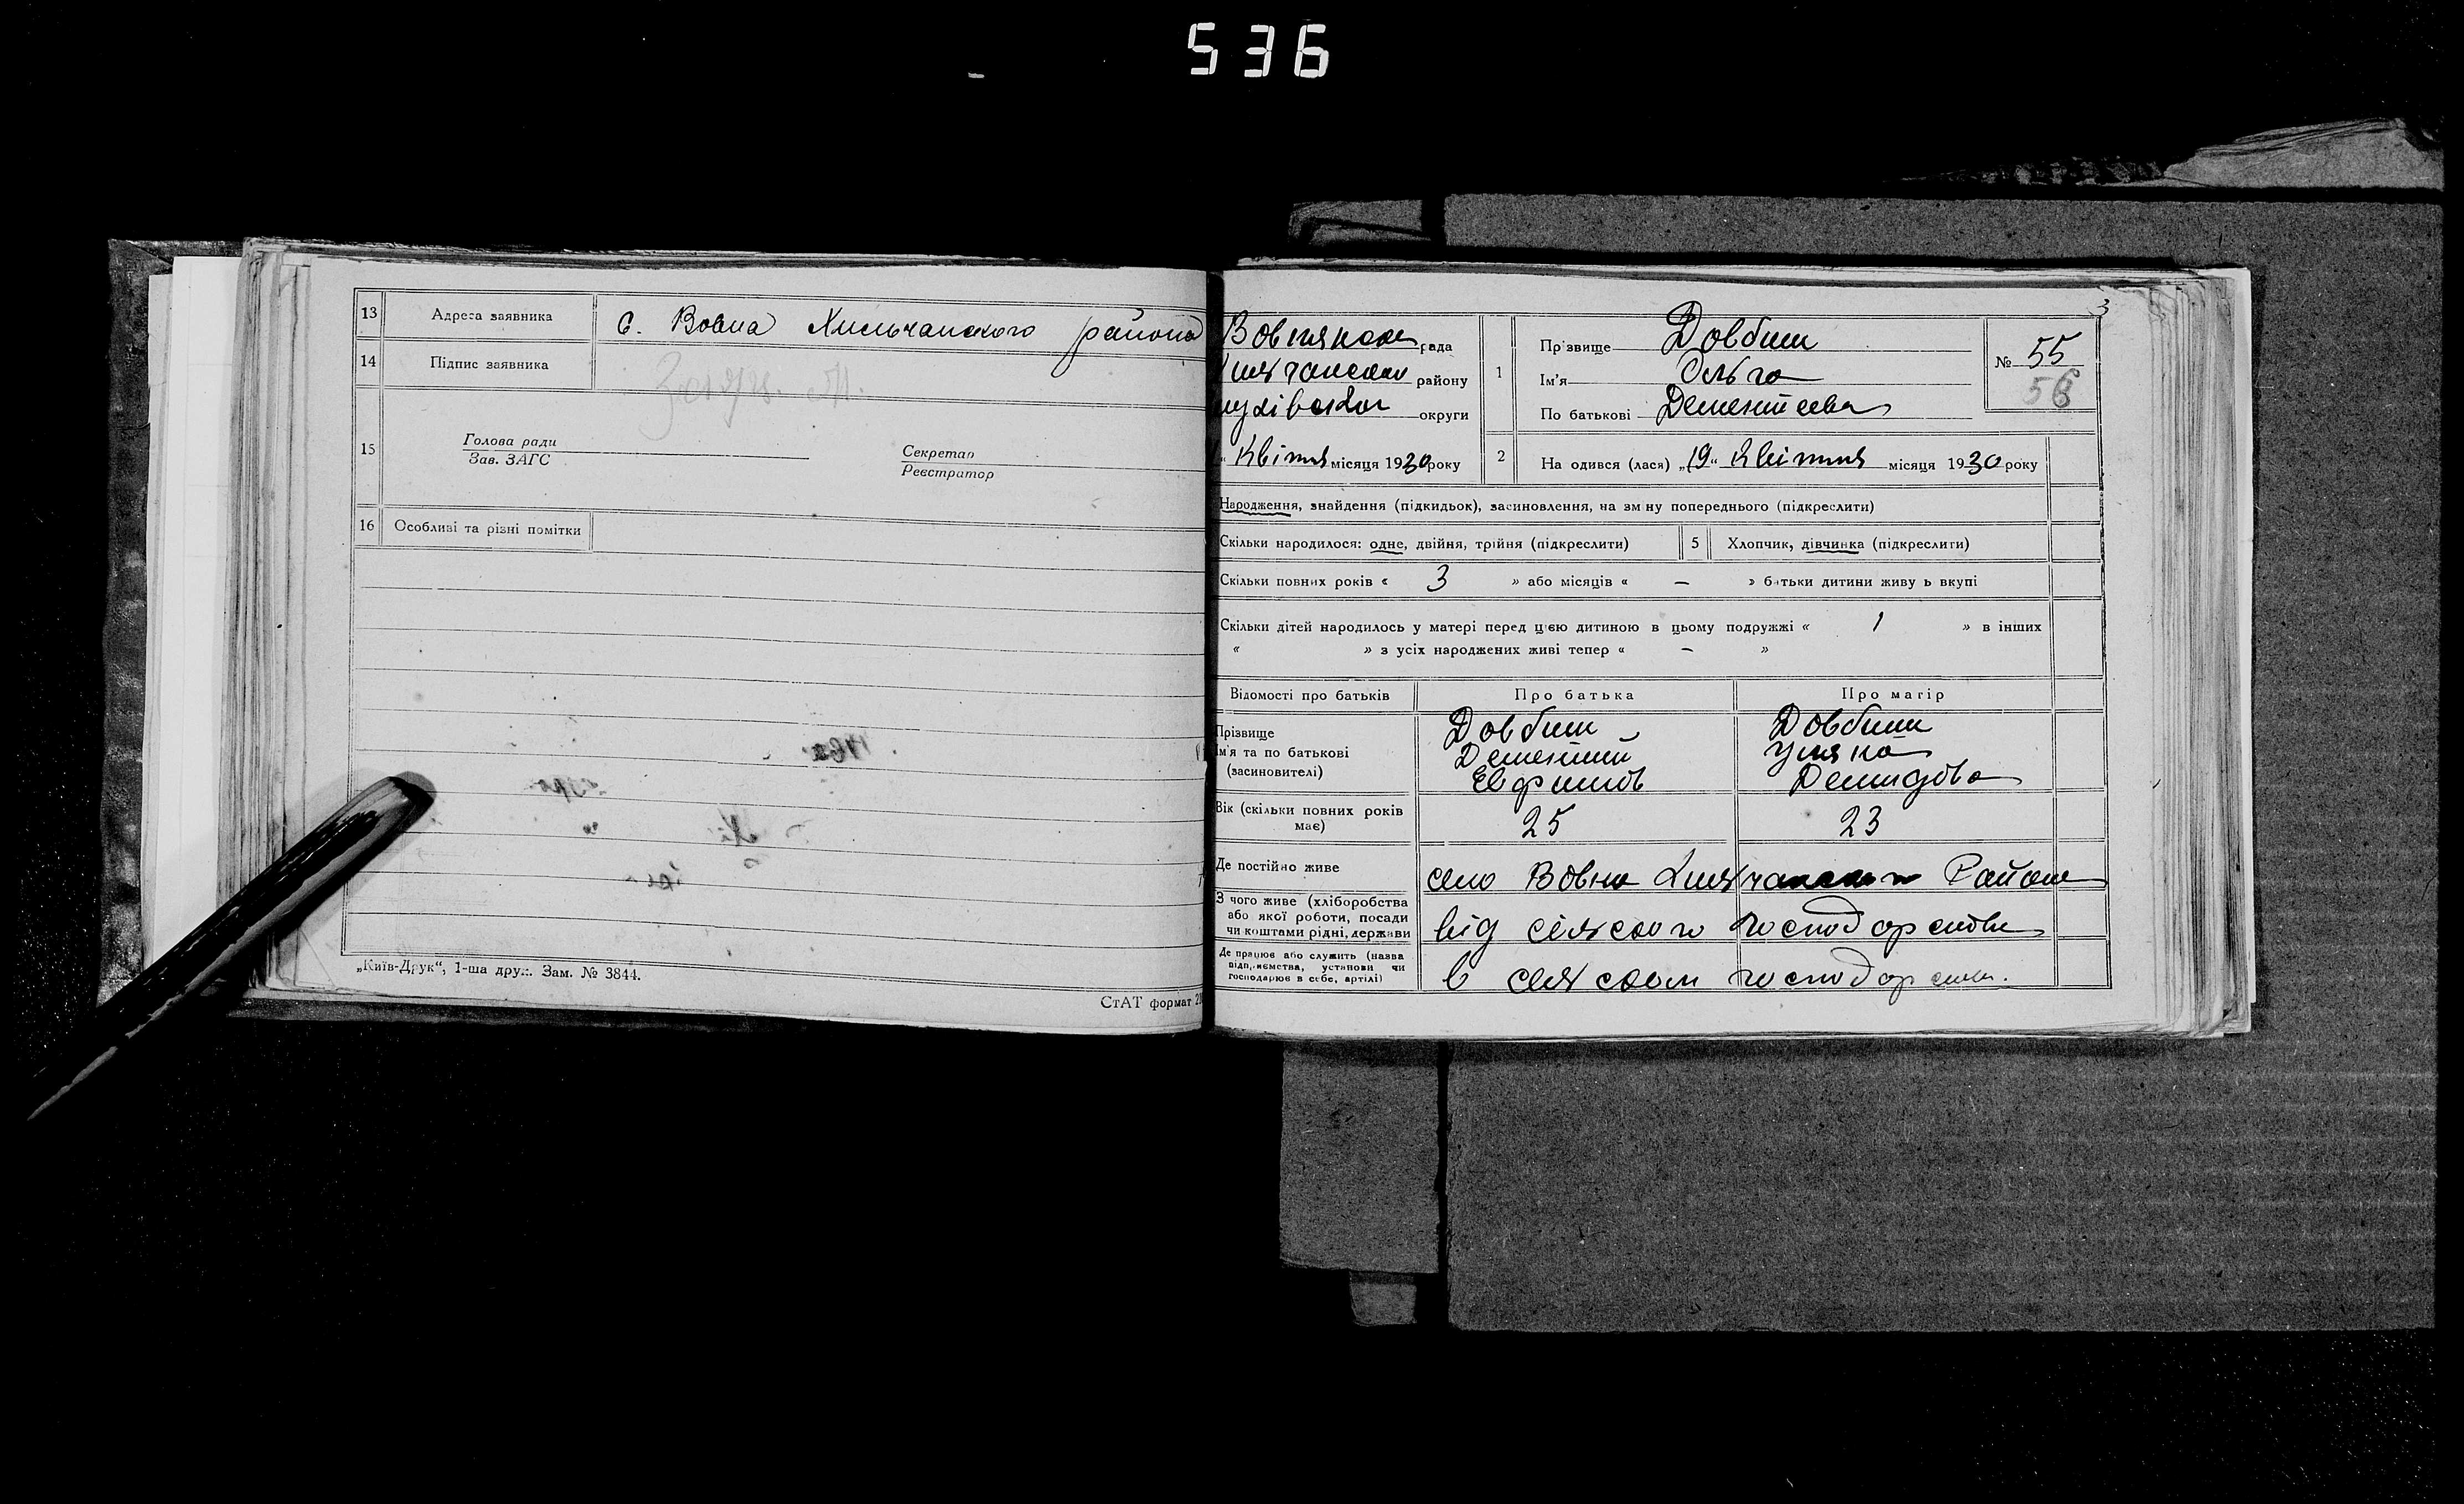 536
13 Адреса заявника с. Вовна Хильчанского района
14 Підпис заявника
15 Голова ради
Зав. ЗАГС
Секретар
Реєстратор
16 Особливі та різні помітки
„Київ-Друк“, 1-ша друк. Зам. № 3844.
СтАТ формат
3
рада
району
округи
Квітня місяця 1930 року
1 Прізвище Довбиш
Ім'я Ольга
По батькові Дементеева
№ 55
56
2 На одився (лася) „19“ Квітня місяця 1930 року
Народження, знайдення (підкидьок), засиновлення, на зміну попереднього (підкреслити)
Скільки народилося: одне, двійня, трійня (підкреслити) 5 Хлопчик, дівчинка (підкреслити)
Скільки повних років « 3 » або місяців « – » батьки дитини живуть вкупі
Скільки дітей народилось у матері перед цією дитиною в цьому подружжі « 1 » в інших
« » з усіх народжених живі тепер « – »
Відомості про батьків Про батька Про матір
Прізвище Довбиш Довбиш
Ім'я та по батькові Дементий Уляна
(засиновителі) Евфимов Демидова
Вік (скільки повних років має) 25 23
Де постійно живе село Вовна Района
З чого живе (хліборобства
або якої роботи, посади
чи коштами рідні, держави від сільского господарства
Де працює або служить (назва
підприємства, установи чи
господарює в себе, артілі) в господар